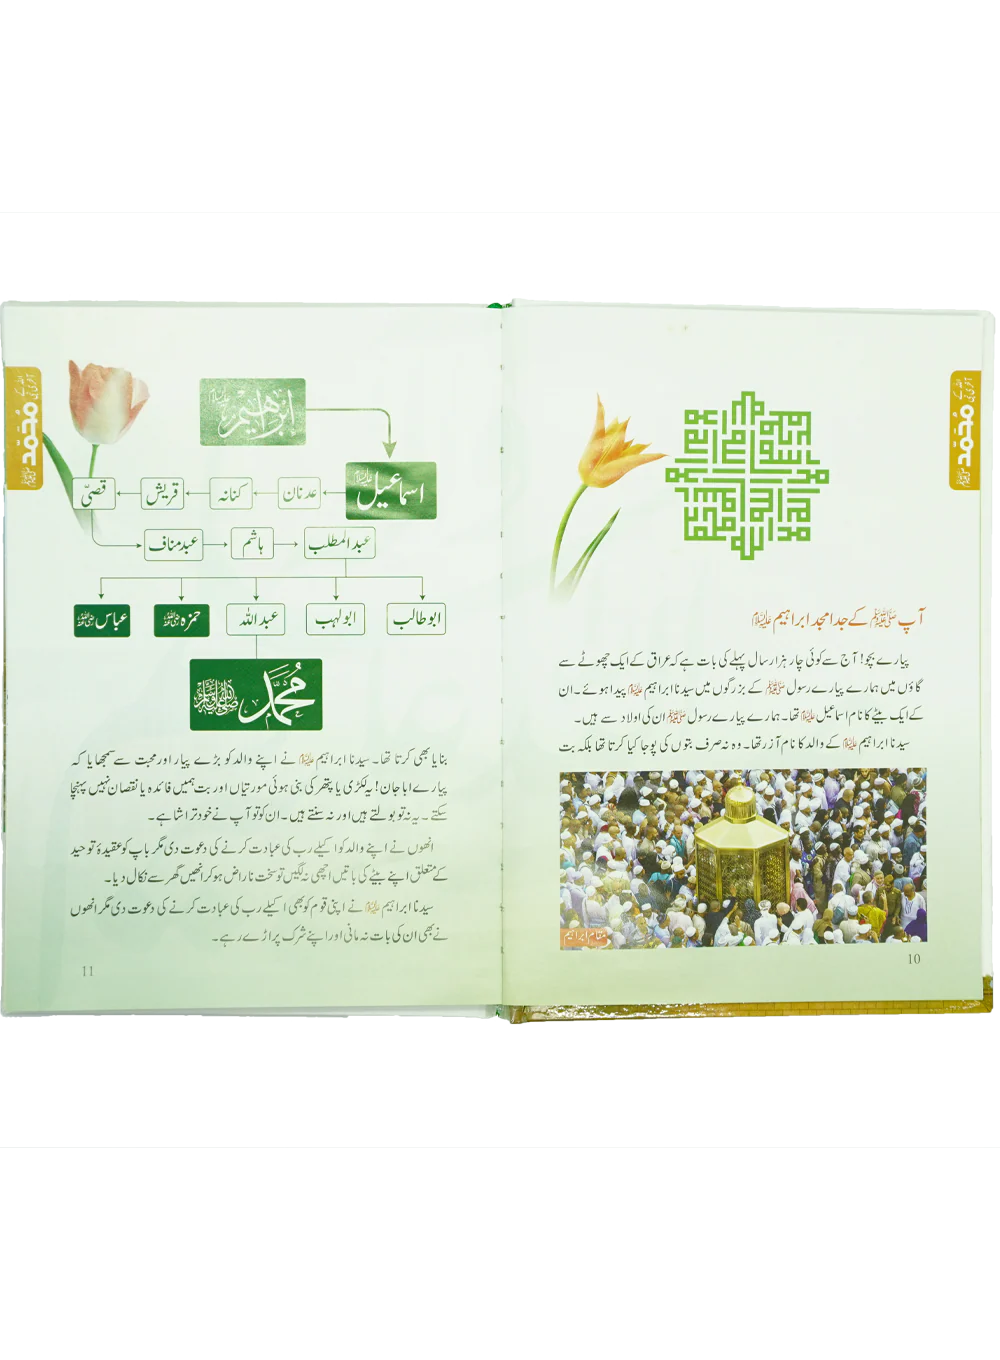 اللہ کے
آخری نبی
محمد ﷺ
آپ ﷺ کے جد امجد ابراہیم علیہ السلام
پیارے بچو! آج سے کوئی چار ہزار سال پہلے کی بات ہے کہ عراق کے ایک چھوٹے سے
گاؤں میں ہمارے پیارے رسول ﷺ کے بزرگوں میں سیدنا ابراہیم علیہ السلام پیدا ہوئے۔ ان
کے ایک بیٹے کا نام اسماعیل علیہ السلام تھا۔ ہمارے پیارے رسول ﷺ ان کی اولاد سے ہیں۔
سیدنا ابراہیم علیہ السلام کے والد کا نام آزر تھا۔ وہ نہ صرف بتوں کی پوجا کیا کرتا تھا بلکہ بت
مقام ابراہیم
10
اللہ کے
آخری نبی
محمد ﷺ
ابراہیم علیہ السلام
اسماعیل علیہ السلام
عدنان
کنانہ
قریش
قصیّ
عبد مناف
ہاشم
عبدالمطلب
ابوطالب
ابولہب
عبداللہ
حمزہ رضی اللہ عنہ
عباس رضی اللہ عنہ
مُحَمَّد ﷺ
بنایا بھی کرتا تھا۔ سیدنا ابراہیم علیہ السلام نے اپنے والد کو بڑے پیار اور محبت سے سمجھایا کہ
پیارے ابا جان! یہ لکڑی یا پتھر کی بنی ہوئی مورتیاں اور بت ہمیں فائدہ یا نقصان نہیں پہنچا
سکتے۔ یہ نہ تو بولتے ہیں اور نہ سنتے ہیں۔ ان کو تو آپ نے خود تراشا ہے۔
انھوں نے اپنے والد کو اکیلے رب کی عبادت کرنے کی دعوت دی مگر باپ کو عقیدۂ توحید
کے متعلق اپنے بیٹے کی باتیں اچھی نہ لگیں تو سخت ناراض ہو کر انھیں گھر سے نکال دیا۔
سیدنا ابراہیم علیہ السلام نے اپنی قوم کو بھی اکیلے رب کی عبادت کرنے کی دعوت دی مگر انھوں
نے بھی ان کی بات نہ مانی اور اپنے شرک پر اڑے رہے۔
11